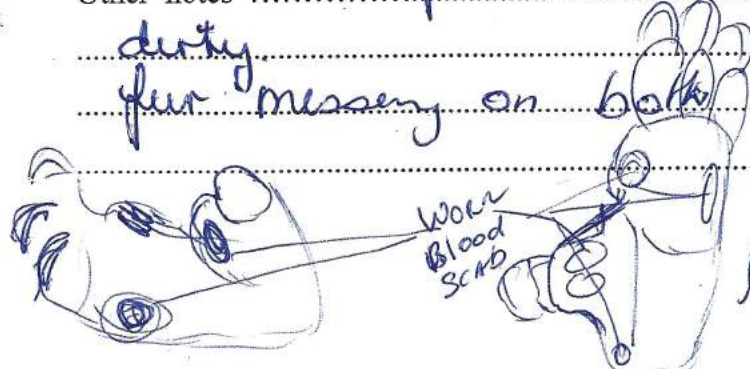 Other notes
dirty.
fur missing on both
WORN
Blood
SCAB